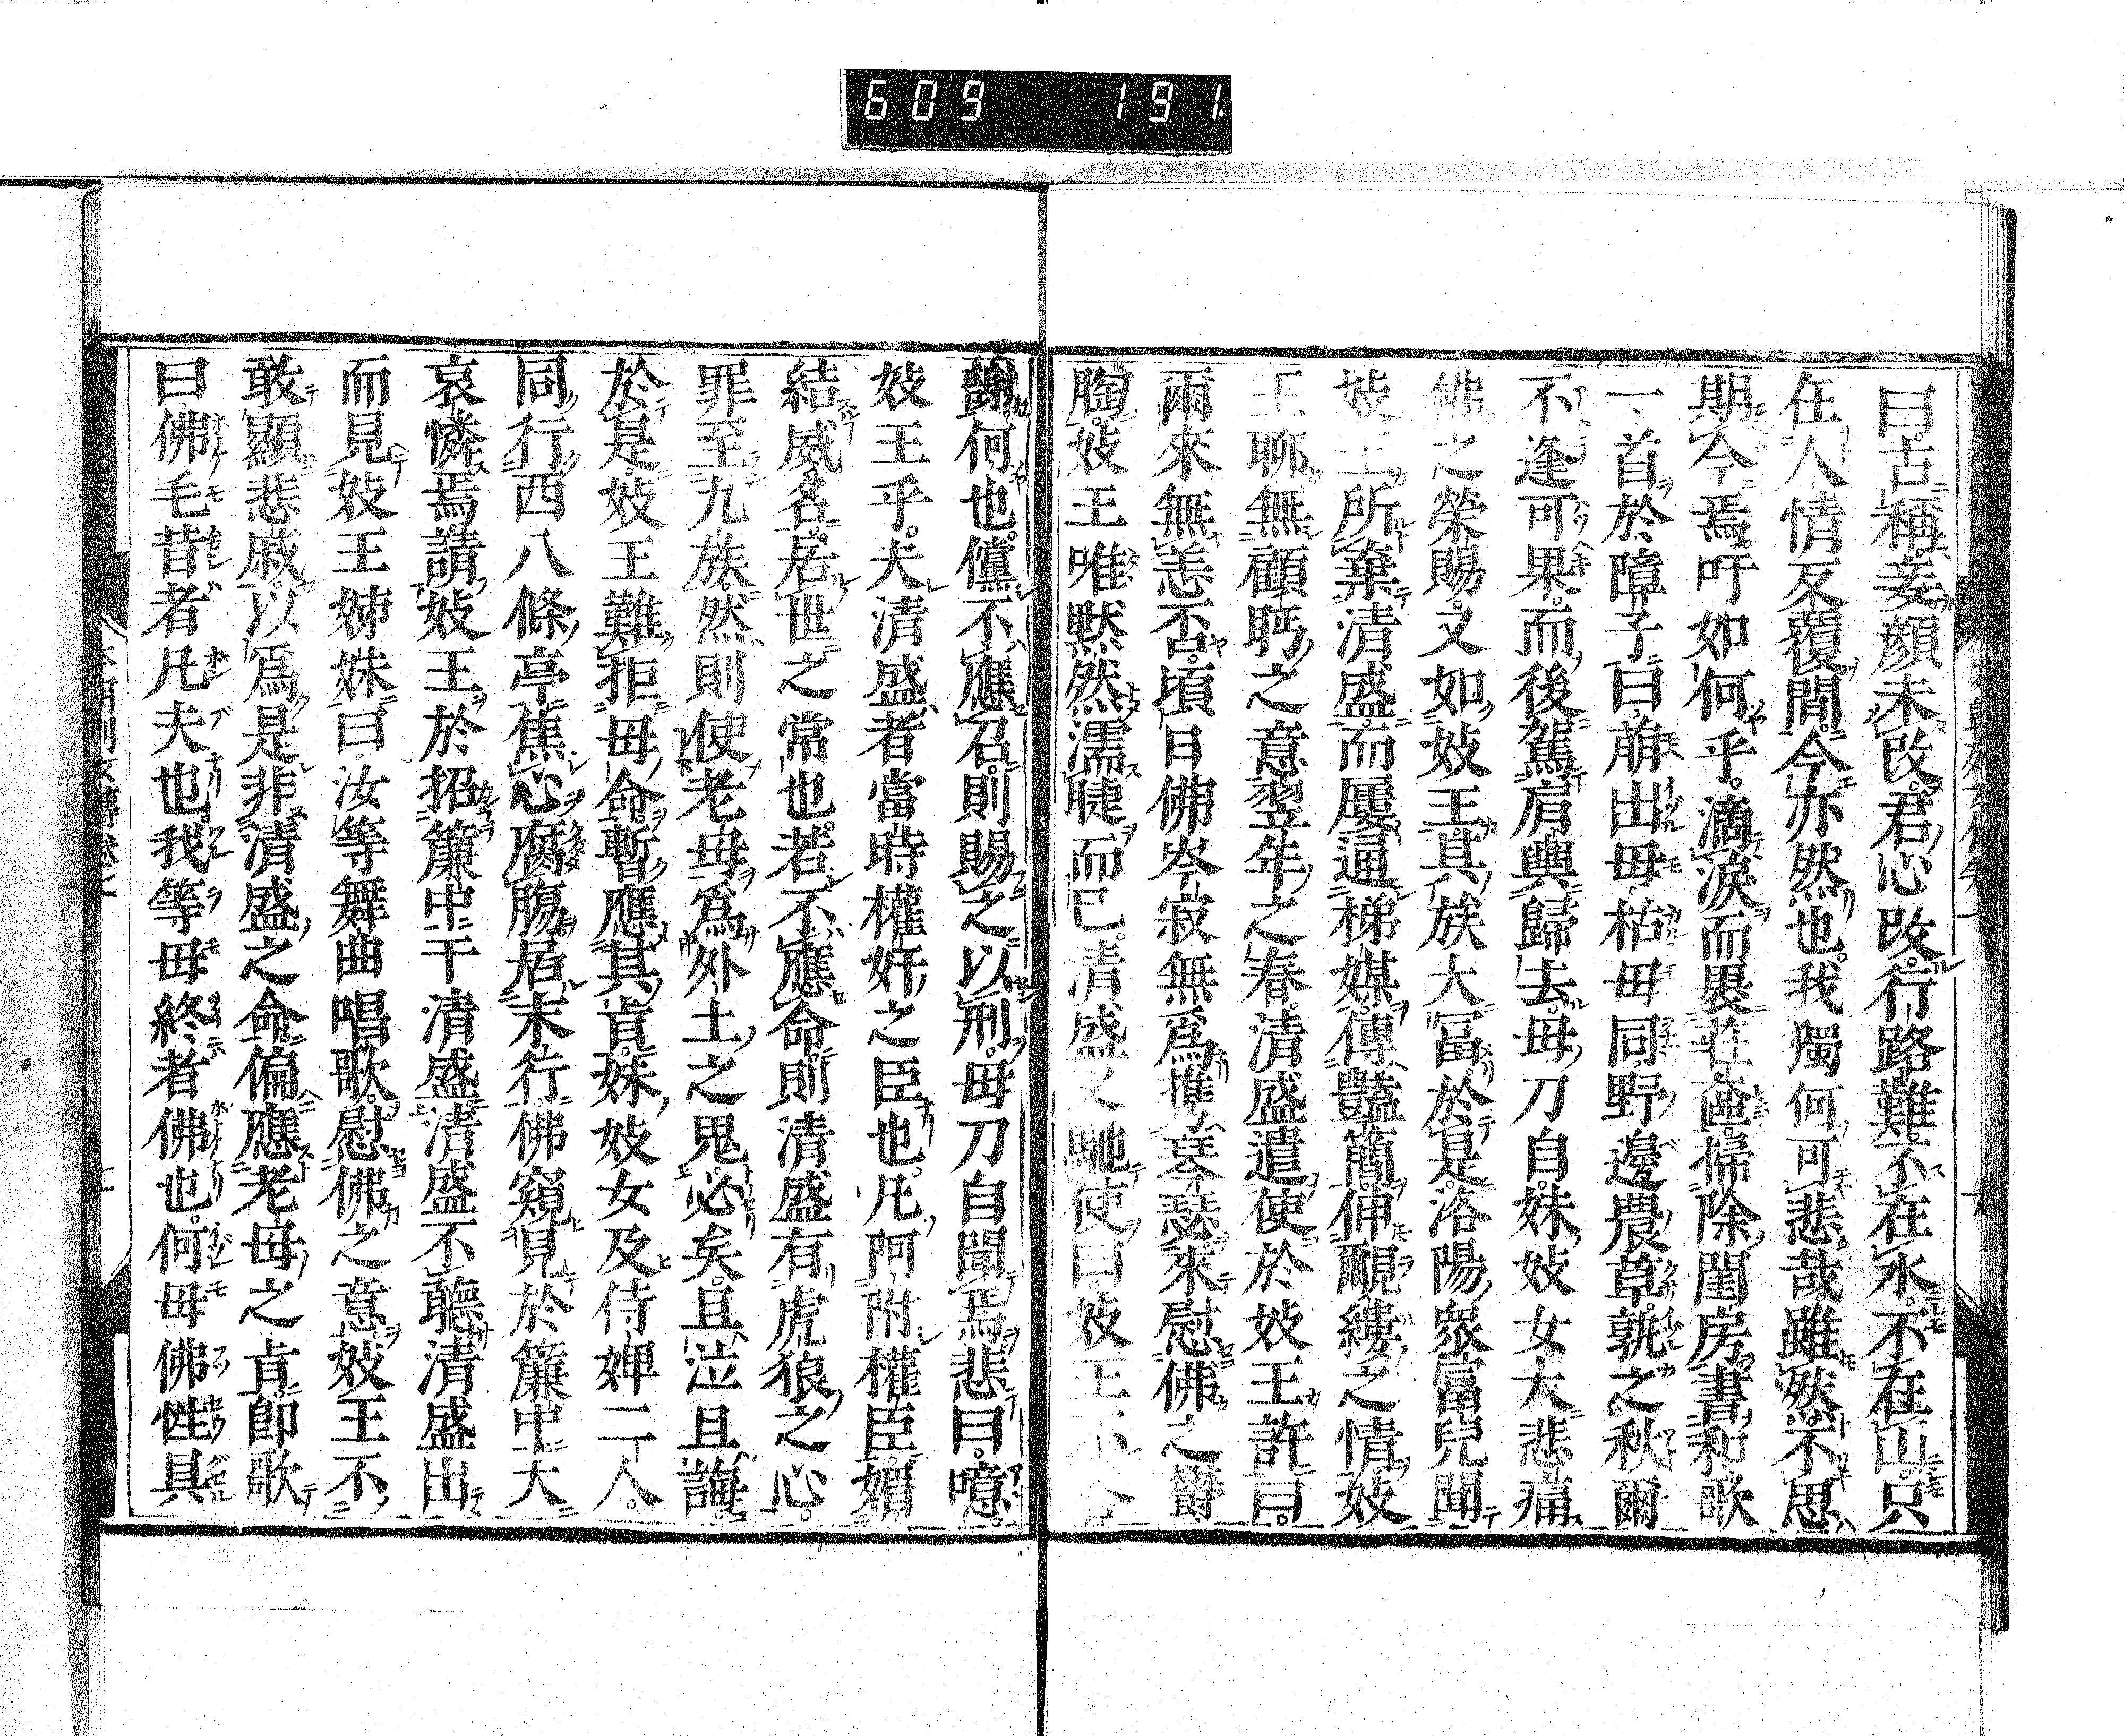 609 191.
曰古稱妾顏未改君心改行路難不在水不在山只
在人情反覆間今亦然也我獨何可悲哉雖然不思
期今焉吁如何乎滴淚而裝匳掃除閨房書和歌
一首於障子曰萠出毋枯毋同野邊農草孰之秋爾
不逢可果而後駕肩輿歸去毋刀自妹妓女大悲痛
佛之榮賜又如妓王其族大冨於是洛陽衆富兒聞
妓王所棄清盛而屢逼梯媒傳豔簡伸覼縷之情妓
王聊無顧眄之意翌年之春清盛遣使於妓王許曰
爾來無恙否頃日佛岑寂無爲携琴瑟來慰佛之欝
陶妓王唯默然濡睫而已清盛又馳使曰妓王不
謝何也儻不應召則賜之以刑毋刀自聞焉悲曰噫
妓王乎夫清盛者當時權奸之臣也凡阿附權臣媚
結威名居世之常也若不應命則清盛有虎狼之心
罪至九族然則使老毋爲外土之鬼必矣且泣且誨
於是妓王難拒毋命暫應其旨妹妓女及侍婢二人
同行西八條亭焦心腐腸居末行佛窺見於簾中大
哀憐焉請妓王於招簾中干清盛清盛不聽清盛出
而見妓王姊妹曰汝等舞曲唱歌慰佛之意妓王不
敢顯悲戚以爲是非清盛之命偏應老毋之旨卽歌
曰佛毛昔者凡夫也我等毋終者佛也何毋佛性具